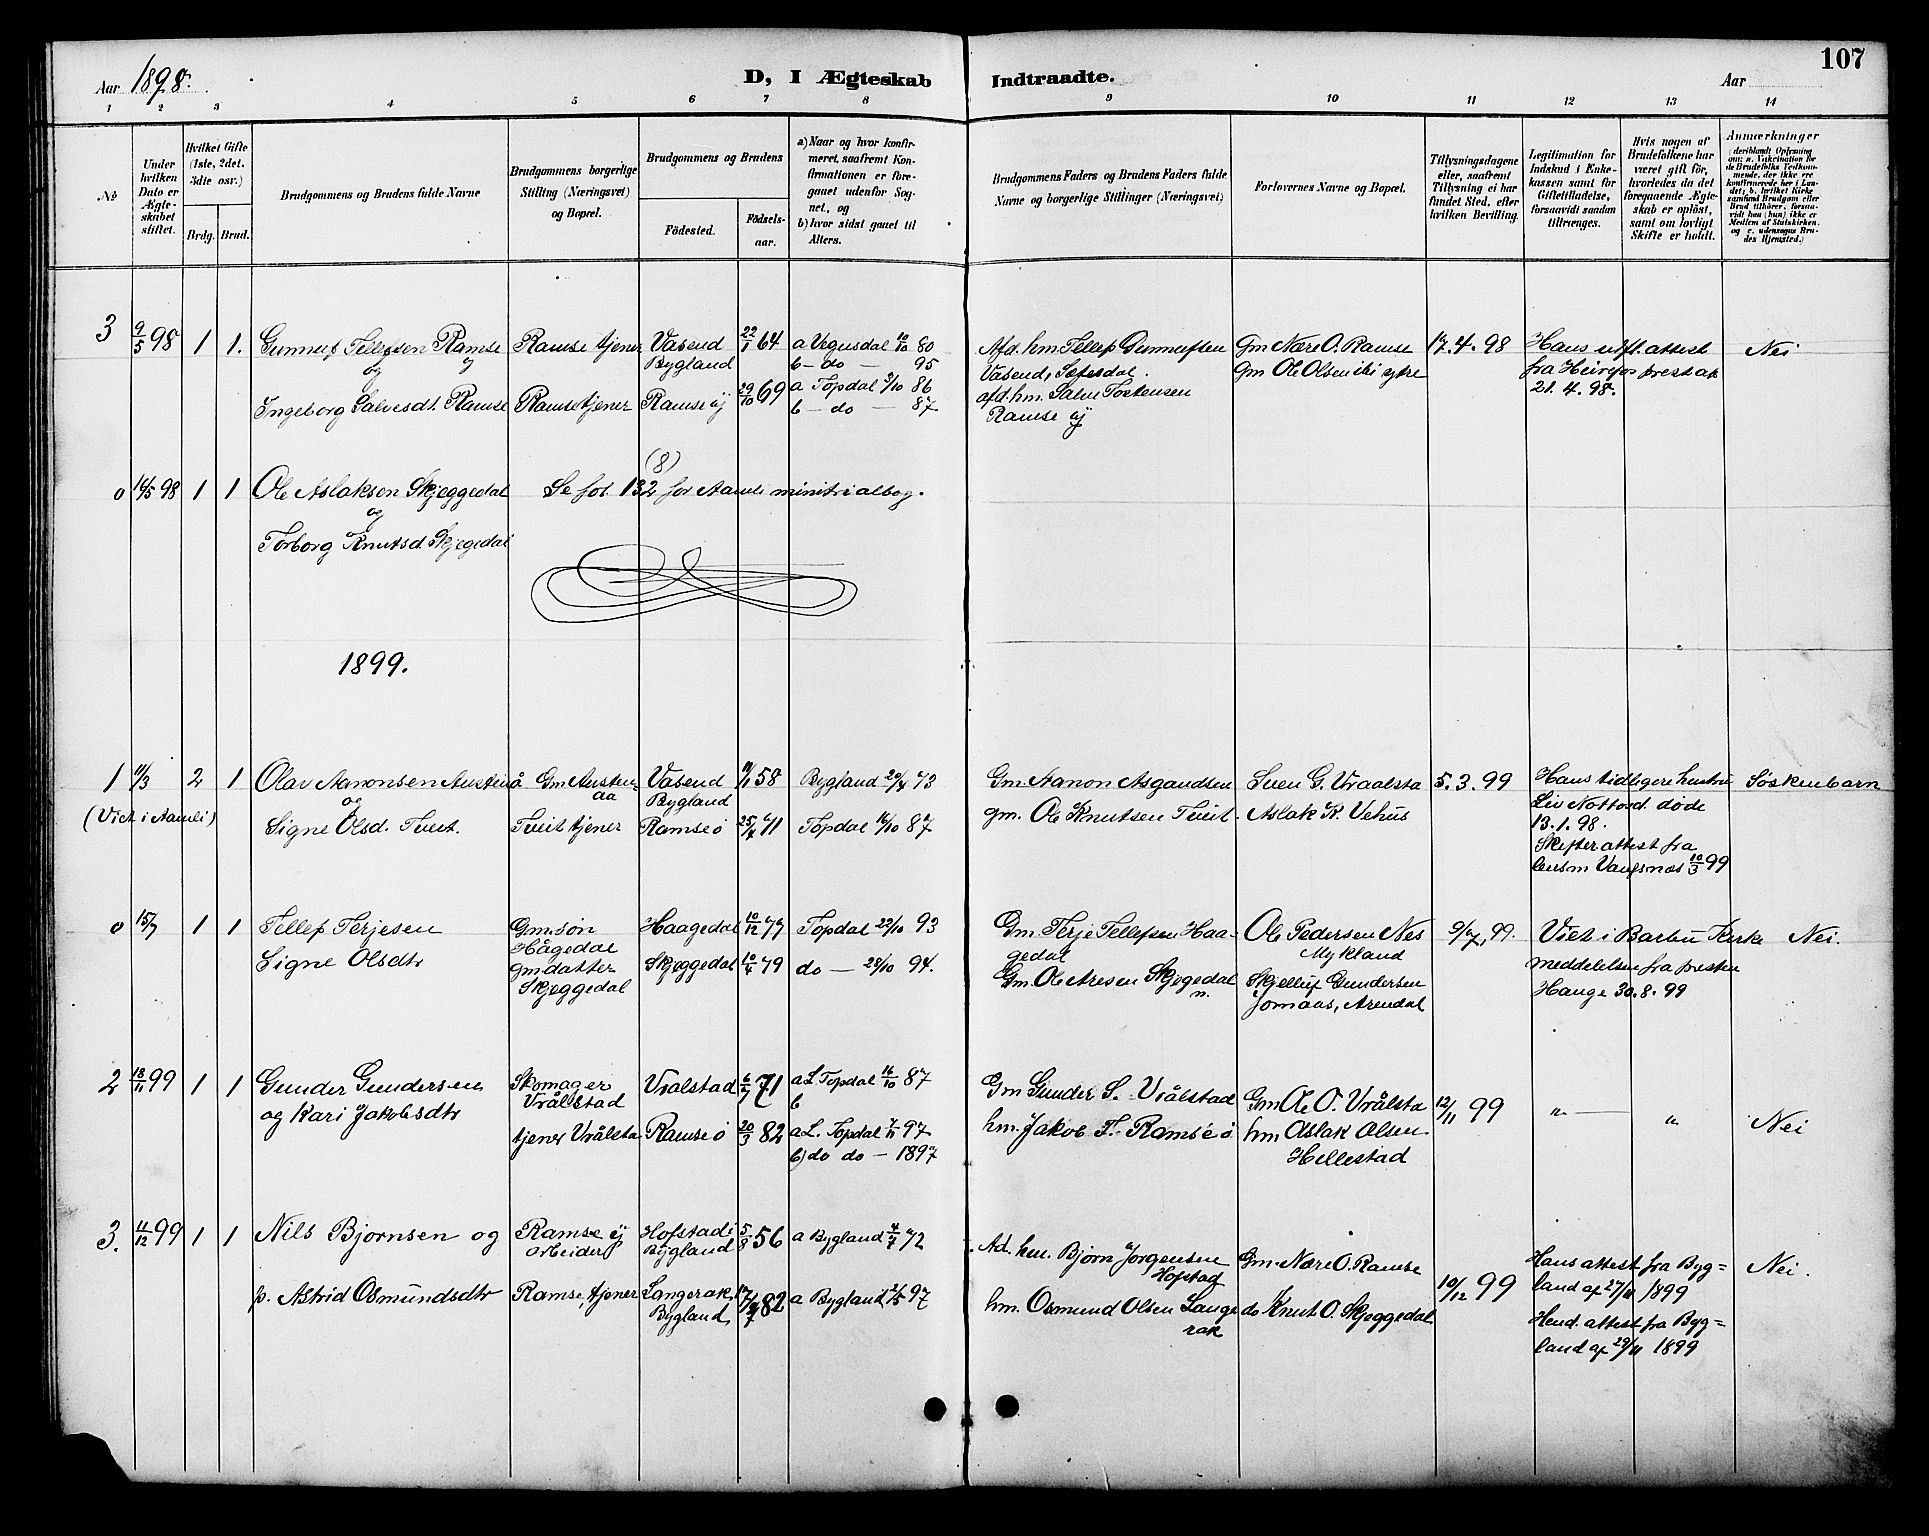 Aar 1898.
D, I Ægteskab Indtraadte.
Aar
107
1 2 3 4 5 6 7 8 9 10 11 12 13 14
No
Under hvilken Dato er Ægteskabet stiftet.
Hvilket Gifte (1ste, 2det, 3die osv.)
Brdg. Brud.
Brudgommens og Brudens fulde Navne
Brudgommens borgerlige Stilling (Næringsvei) og Bopæl.
Brudgommens og Brudens
Födested.
Födselsaar.
a) Naar og hvor konfirmeret, saafremt Konfirmationen er foregaaet udenfor Sognet, og
b) hvor sidst gaaet til Alters.
Brudgommens Faders og Brudens Faders fulde Navne og borgerlige Stillinger (Næringsvei)
Forlovernes Navne og Bopæl.
Tillysningsdagene eller, saafremt Tillysning ei har fundet Sted, efter hvilken Bevilling.
Legitimation for Indskud i Enkekassen samt for Giftetilladelse, forsaavidt saadan tiltrænges.
Hvis nogen af Brudefolkene har været gift för, hvorledes da det foregaaende Ægteskab er oplöst, samt om lovligt Skifte er holdt.
Anmærkninger
3 9/5 98 1 1. Gunnuf Tellefsen Ramse Ramse tjener Vasend 22/1 64 a Vegusdal 10/10 80 Afd. hm. Tellef Gunnufsen Gm Nære O. Ramse 17.4.98 Hans udfl. attest Nei
og øy Bygland b - do - 95 Vasend, Sætesdal. Gm Ole Olsen ibi ytre fra Heirefos prestak
Ingeborg Salvesdt. Ramse Ramse tjener Ramse øy 29/10 69 a Topdal 3/10 86 afd. hm. Salve Tostensen 21.4.98.
b - do - 87 Ramse øy
(8)
0 14/5 98 1 1 Ole Aslaksen Skjeggedal Se fol 132 for Aamli ministrialbog.
og
Torborg Knutsd. Skjegedal
1899.
1 11/3 2 1 Olav Aanonsen Austenå Gm Austenaa Vasend 11/1 58 Bygland 20/4 73 Gm. Aanon Asgaudsen Suen G. Vraalsta 5.3.99 Hans tidligere hustru Söskenbarn
(Viet i Aamli) og Bygland Liv Nottosd. döde
Signe Olsd. Tveit. Tveit tjener Ramse ø 25/4 71 Topdal 16/10 87 gm. Ole Knutsen Tveit. Aslak K. Vehus 13.1.98.
Skifterattest fra
lensm Vangsnæs 10/3 99
0 15/7 1 1 Tellef Terjesen Gm.søn Haagedal 10/12 77 Topdal 29/10 93 Gm. Terje Tellefsen Haa- Ole Pedersen Nes 9/7, 99. Viet i Barbu Kirke Nei.
Hågedal gedal Mykland
Signe Olsdtr gmdatter Skjeggedal 10/4 79 do - 28/10 94. Gm. Ole Aresen Skjegedal Skjelluf Gundersen meddelelsen fra presten
Skjeggedal n. Jomaas, Arendal Hauge 30.8.99
2 18/11 99 1 1 Gunder Gundersen Skomager Vrålstad 6/7 71 a L. Topdal 16/10 87 Gm Gunder S. Vrålstad Gm Ole O. Vrålsta 12/11 99 " — " Nei
Vrålstad b
og Kari Jakobsdtr tjener Vrålsta Ramse ø 20/3 82 a L. Topdal 7/11 97 hm. Jakob T. Ramse ø hm Aslak Olsen
b) do do - 1897 Hillestad
3. 11/12 99 1 1 Nils Bjørnsen og Ramse øy Hofstad i 5/8 56 a Bygland 4/7 72 Ad. hm. Bjørn Jørgensen Gm. Nære O. Ramse 10/12 99 Hans attest fra Byg= Nei.
arbeider Bygland Hofstad land af 27/11 1899
p. Astrid Osmundsdtr Ramse, tjener Langerak 82 a Bygland 2/5 97 hm. Osmund Olsen Lange do Knut O. Skjeggedal Hend. attest fra Byg=
Bygland rak land af 29/11 1899